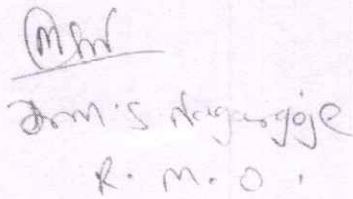 Dr. M. S. Nagargoje
R. M. O.